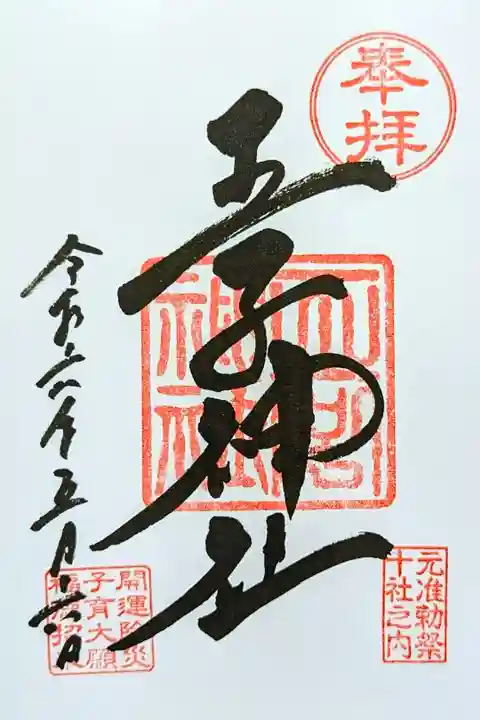 奉拝
王子神社
令和六年五月六日
元准勅祭
十社之内
開運除災
子育大願
福徳招来